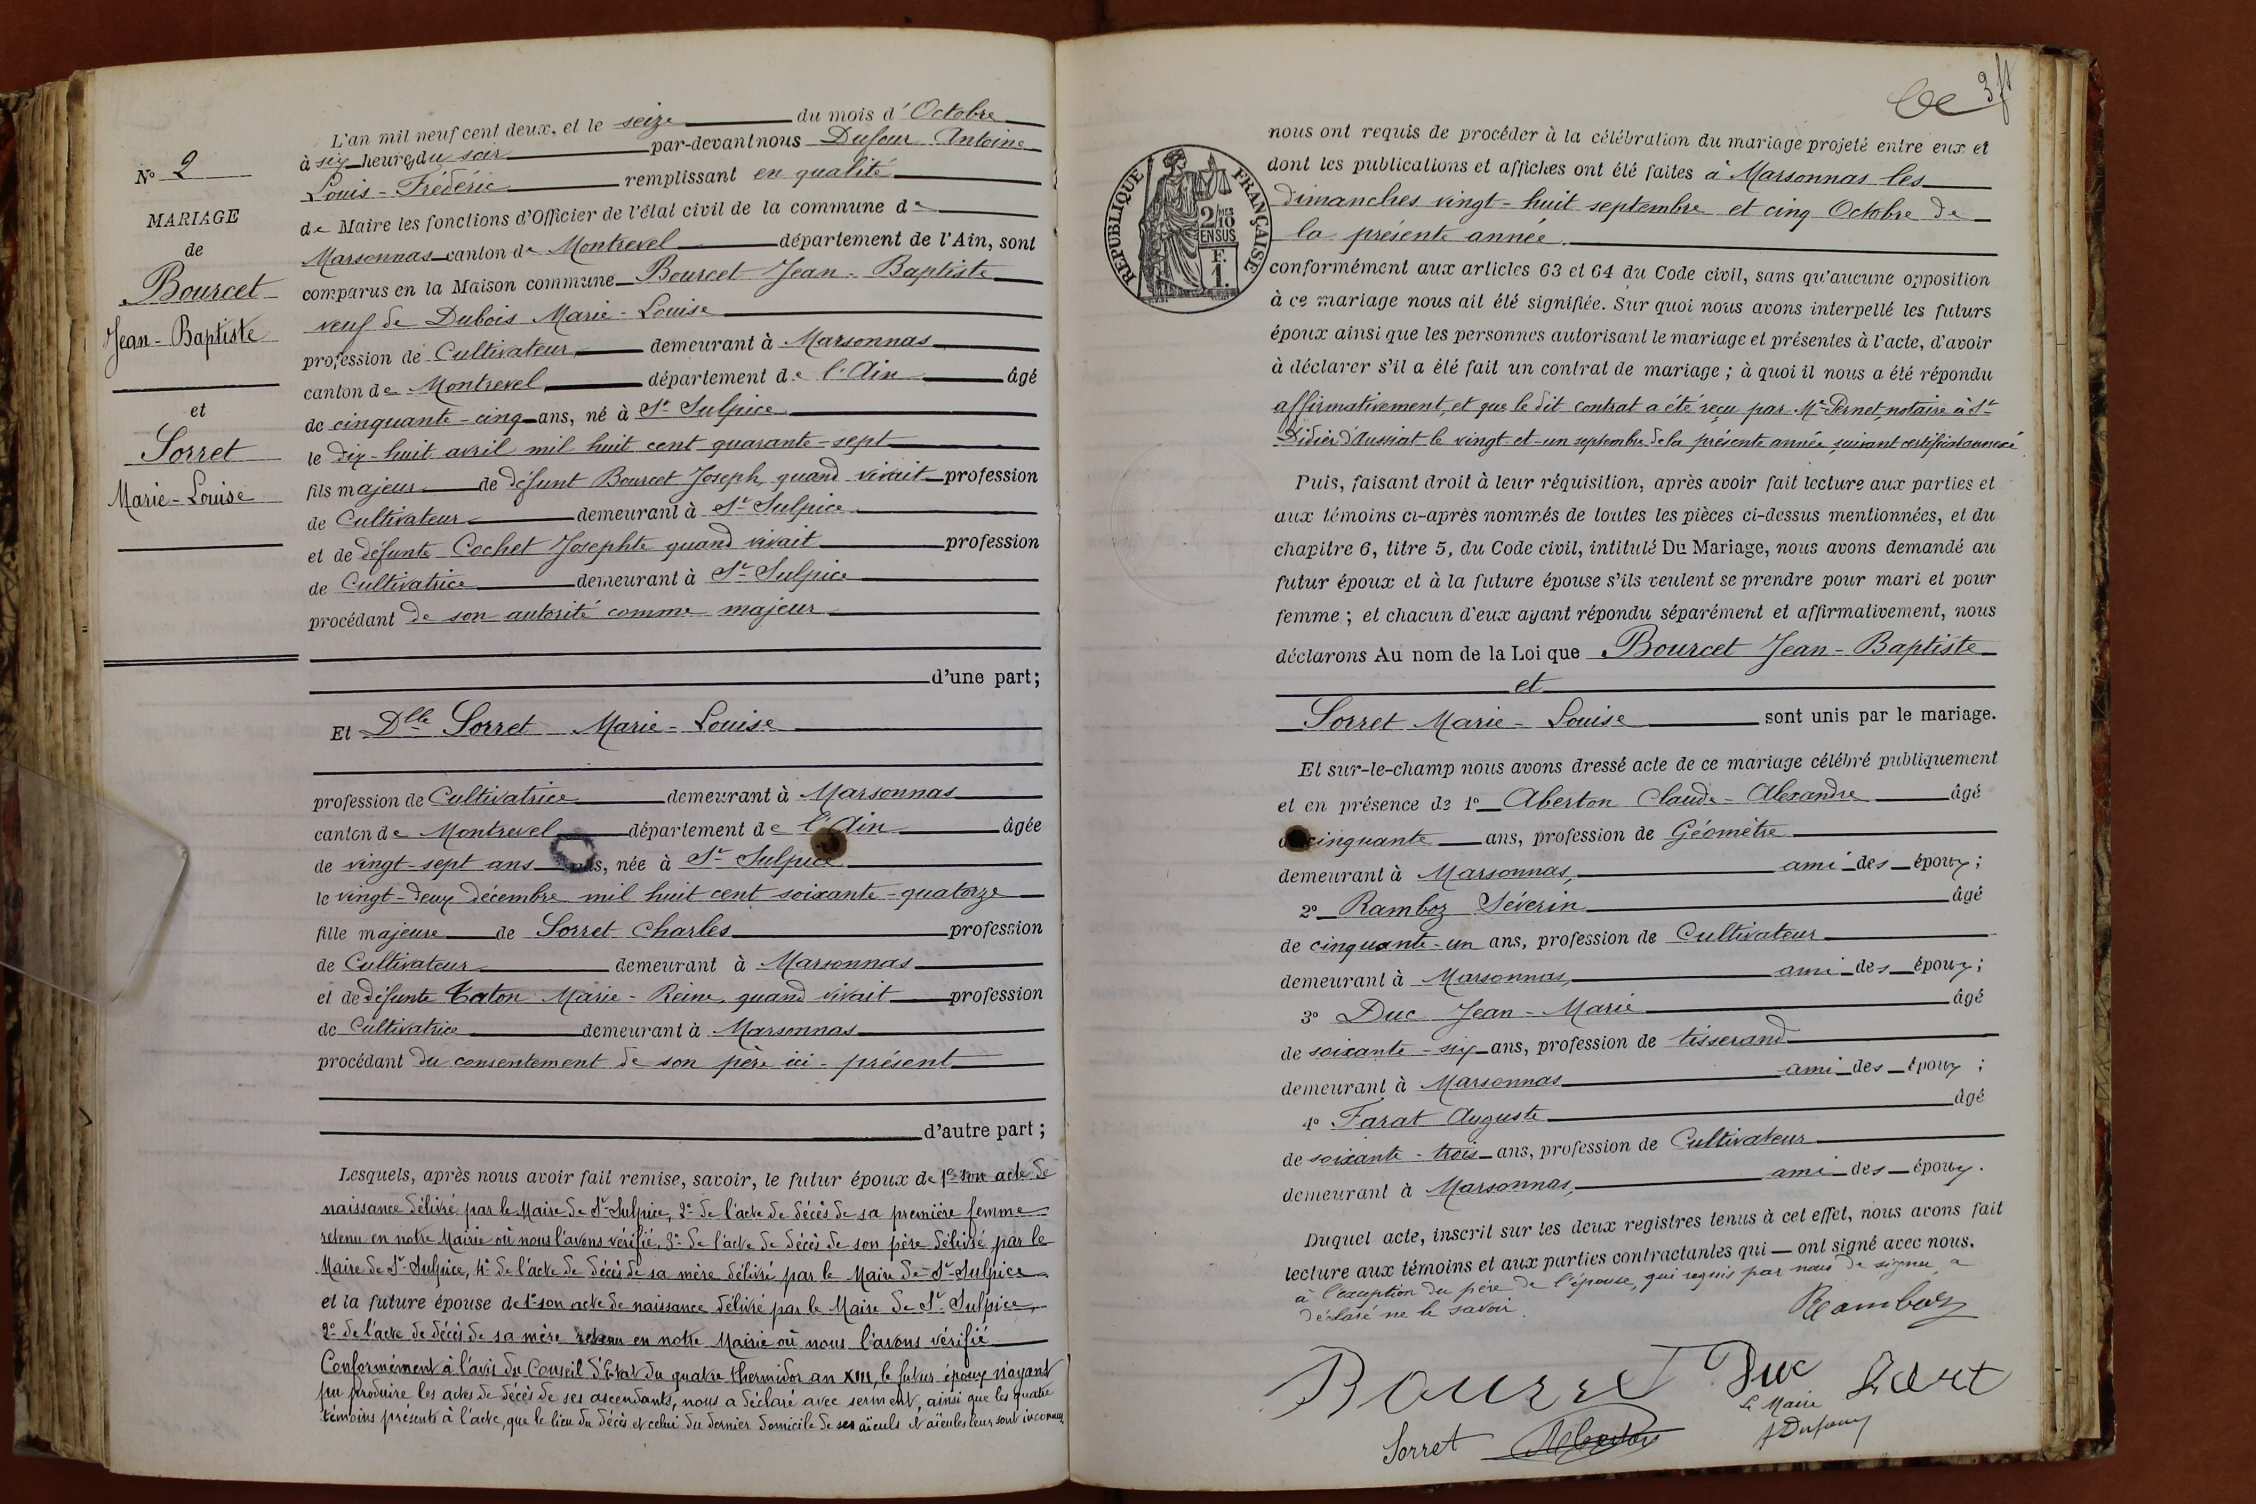 L'an mil neuf cent deux, et le seize du mois d'Octobre
à six heures du soir par-devant nous Dufour Antoine
Louis-Frédéric remplissant en qualité
de Maire les fonctions d'Officier de l'état civil de la commune de
Marsonnas canton de Montrevel département de l'Ain, sont
comparus en la Maison commune Bourcet Jean-Baptiste
veuf de Dubois Marie-Louise
profession de Cultivateur, demeurant à Marsonnas
canton de Montrevel, département de l'Ain âgé
de cinquante-cinq ans, né à St Sulpice
le dix-huit avril mil huit cent quarante-sept
fils majeur de défunt Bourcet Joseph, quand vivait profession
de Cultivateur demeurant à St Sulpice
et de défunte Cochet Josephte quand vivait profession
de Cultivatrice demeurant à St Sulpice
procédant de son autorité comme majeur
d'une part;
Et Dlle Sorret Marie-Louise
profession de Cultivatrice demeurant à Marsonnas
canton de Montrevel département de l'Ain âgée
de vingt-sept ans ans, née à St Sulpice
le vingt-deux décembre mil huit cent soixante-quatorze
fille majeure de Sorret Charles profession
de Cultivateur demeurant à Marsonnas
et de défunte Caton Marie-Reine, quand vivait profession
de Cultivatrice demeurant à Marsonnas
procédant du consentement de son père ici-présent
d'autre part;
Lesquels, après nous avoir fait remise, savoir, le futur époux de 1° son acte de
naissance délivré par le Maire de St Sulpice, 2° de l'acte de décès de sa première femme
retenu en notre Mairie où nous l'avons vérifié, 3° de l'acte de décès de son père délivré par le
Maire de St Sulpice, 4° de l'acte de décès de sa mère délivré par le Maire de St Sulpice
et la future épouse de 1° son acte de naissance délivré par le Maire de St Sulpice,
2° de l'acte de décès de sa mère retenu en notre Mairie où nous l'avons vérifié
Conformément à l'avis du Conseil d'Etat du quatre thermidor an XIII, le futur époux n'ayant
pu produire les actes de décès de ses ascendants, nous a déclaré avec serment, ainsi que les quatre
témoins présents à l'acte, que le lieu du décès et celui du dernier domicile de ses aïeuls et aïeules leur sont inconnus
N° 2
MARIAGE
de
Bourcet
Jean-Baptiste
et
Sorret
Marie-Louise
3
RÉPUBLIQUE FRANÇAISE
2/10
EN SUS
F.
1.
nous ont requis de procéder à la célébration du mariage projeté entre eux et
dont les publications et affiches ont été faites à Marsonnas les
dimanches vingt-huit septembre et cinq Octobre de
la présente année.
conformément aux articles 63 et 64 du Code civil, sans qu'aucune opposition
à ce mariage nous ait été signifiée. Sur quoi nous avons interpellé les futurs
époux ainsi que les personnes autorisant le mariage et présentes à l'acte, d'avoir
à déclarer s'il a été fait un contrat de mariage; à quoi il nous a été répondu
affirmativement, et que le dit contrat a été reçu par Me Pernet, notaire à St
Didier d'Aussiat le vingt et-un septembre de la présente année, suivant certificat annexé
Puis, faisant droit à leur réquisition, après avoir fait lecture aux parties et
aux témoins ci-après nommés de toutes les pièces ci-dessus mentionnées, et du
chapitre 6, titre 5, du Code civil, intitulé Du Mariage, nous avons demandé au
futur époux et à la future épouse s'ils veulent se prendre pour mari et pour
femme; et chacun d'eux ayant répondu séparément et affirmativement, nous
déclarons Au nom de la Loi que Bourcet Jean-Baptiste
et
Sorret Marie-Louise sont unis par le mariage.
Et sur-le-champ nous avons dressé acte de ce mariage célébré publiquement
et en présence de 1° Aberton Claude-Alexandre âgé
cinquante ans, profession de Géomètre
demeurant à Marsonnas, ami des époux;
2° Ramboz Séverin âgé
de cinquante-un ans, profession de Cultivateur
demeurant à Marsonnas, ami des époux;
3° Duc Jean-Marie âgé
de soixante-six ans, profession de tisserand
demeurant à Marsonnas ami des époux;
4° Farat Auguste âgé
de soixante-trois ans, profession de Cultivateur
demeurant à Marsonnas, ami des époux.
Duquel acte, inscrit sur les deux registres tenus à cet effet, nous avons fait
lecture aux témoins et aux parties contractantes qui ont signé avec nous.
à l'exception du père de l'épouse, qui requis par nous de signer, a
déclaré ne le savoir.
Ramboz
Bourcet Duc
Le Maire
Sorret Aberton A Dufour